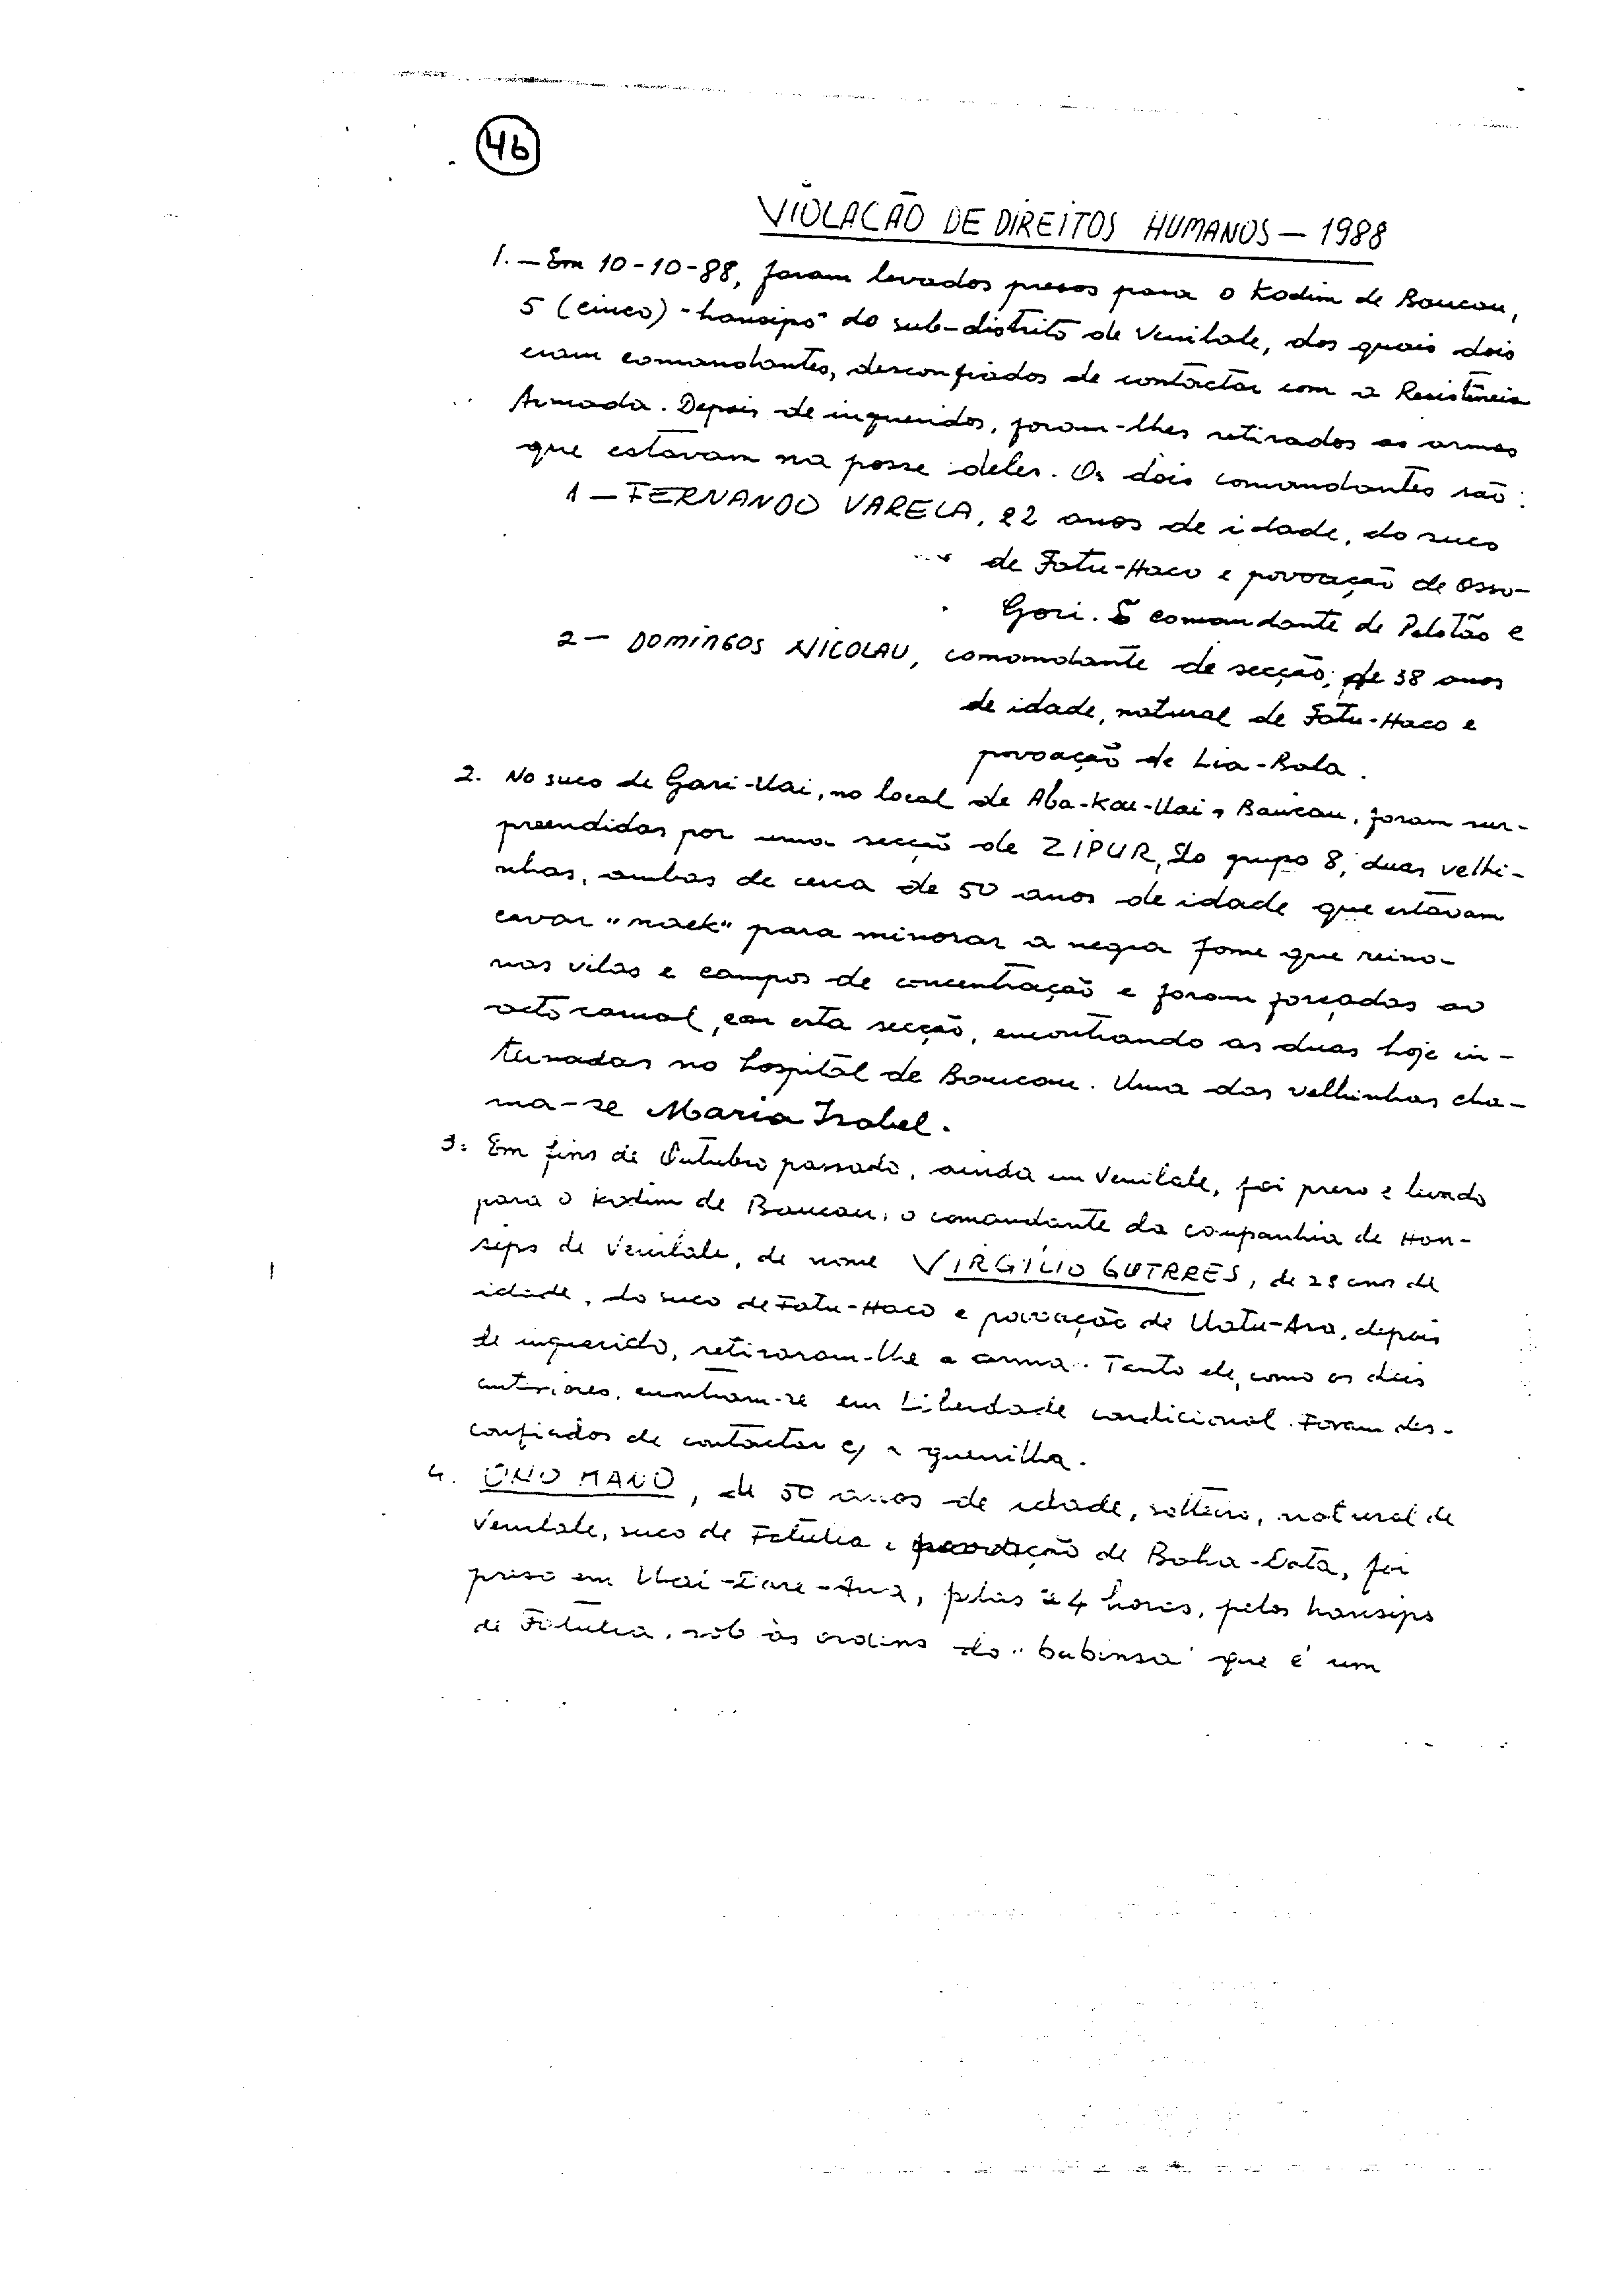 46
VIOLACÃO DE DIREITOS HUMANOS — 1988
1. — Em 10-10-88, foram levados presos para o Kodim de Baucau,
5 (cinco) "hansips" do sub-distrito de Venilale, dos quais dois
eram comandantes, desconfiados de contactar com a Resistência
Armada. Depois de inqueridos, foram-lhes retirados as armas
que estavam na posse deles. Os dois comandantes são:
1 — FERNANDO VARELA, 22 anos de idade, do suco
de Fatu-Haco e povoação de Osso-
Gori. É comandante de Pelotão e
2 — DOMINGOS NICOLAU, comandante de secção, de 38 anos
de idade, natural de Fatu-Haco e
povoação de Lia-Bala.
2. No suco de Gari-Uai, no local de Aba-Kae-Uai, Baucau, foram sur-
preendidas por uma secção de ZIPUR, do grupo 8, duas velhi-
nhas, ambas de cerca de 50 anos de idade que estavam
cavar "maek" para minorar a negra fome que reina
nas vilas e campos de concentração e foram forçadas ao
acto carnal, com esta secção, encontrando as duas hoje in-
ternadas no hospital de Baucau. Uma das velhinhas cha-
ma-se Maria Isabel.
3. Em fins de Outubro passado, ainda em Venilale, foi preso e levado
para o Kodim de Baucau, o comandante da companhia de Han-
sips de Venilale, de nome VIRGÍLIO GUTRRES, de 28 anos de
idade, do suco de Fatu-Haco e povoação de Uatu-Ara, depois
de inquerido, retiraram-lhe a arma. Tanto ele, como os dois
anteriores, encontram-se em Liberdade condicional. Foram des-
confiados de contactar c/ a guerrilha.
4. ONO MANO, de 50 anos de idade, solteiro, natural de
Venilale, suco de Fatulia e povoação de Baha-Data, foi
preso em Uai- -Ana, pelas 24 horas, pelos hansips
de Fatulia, sob as ordens do "babinsa" que é um